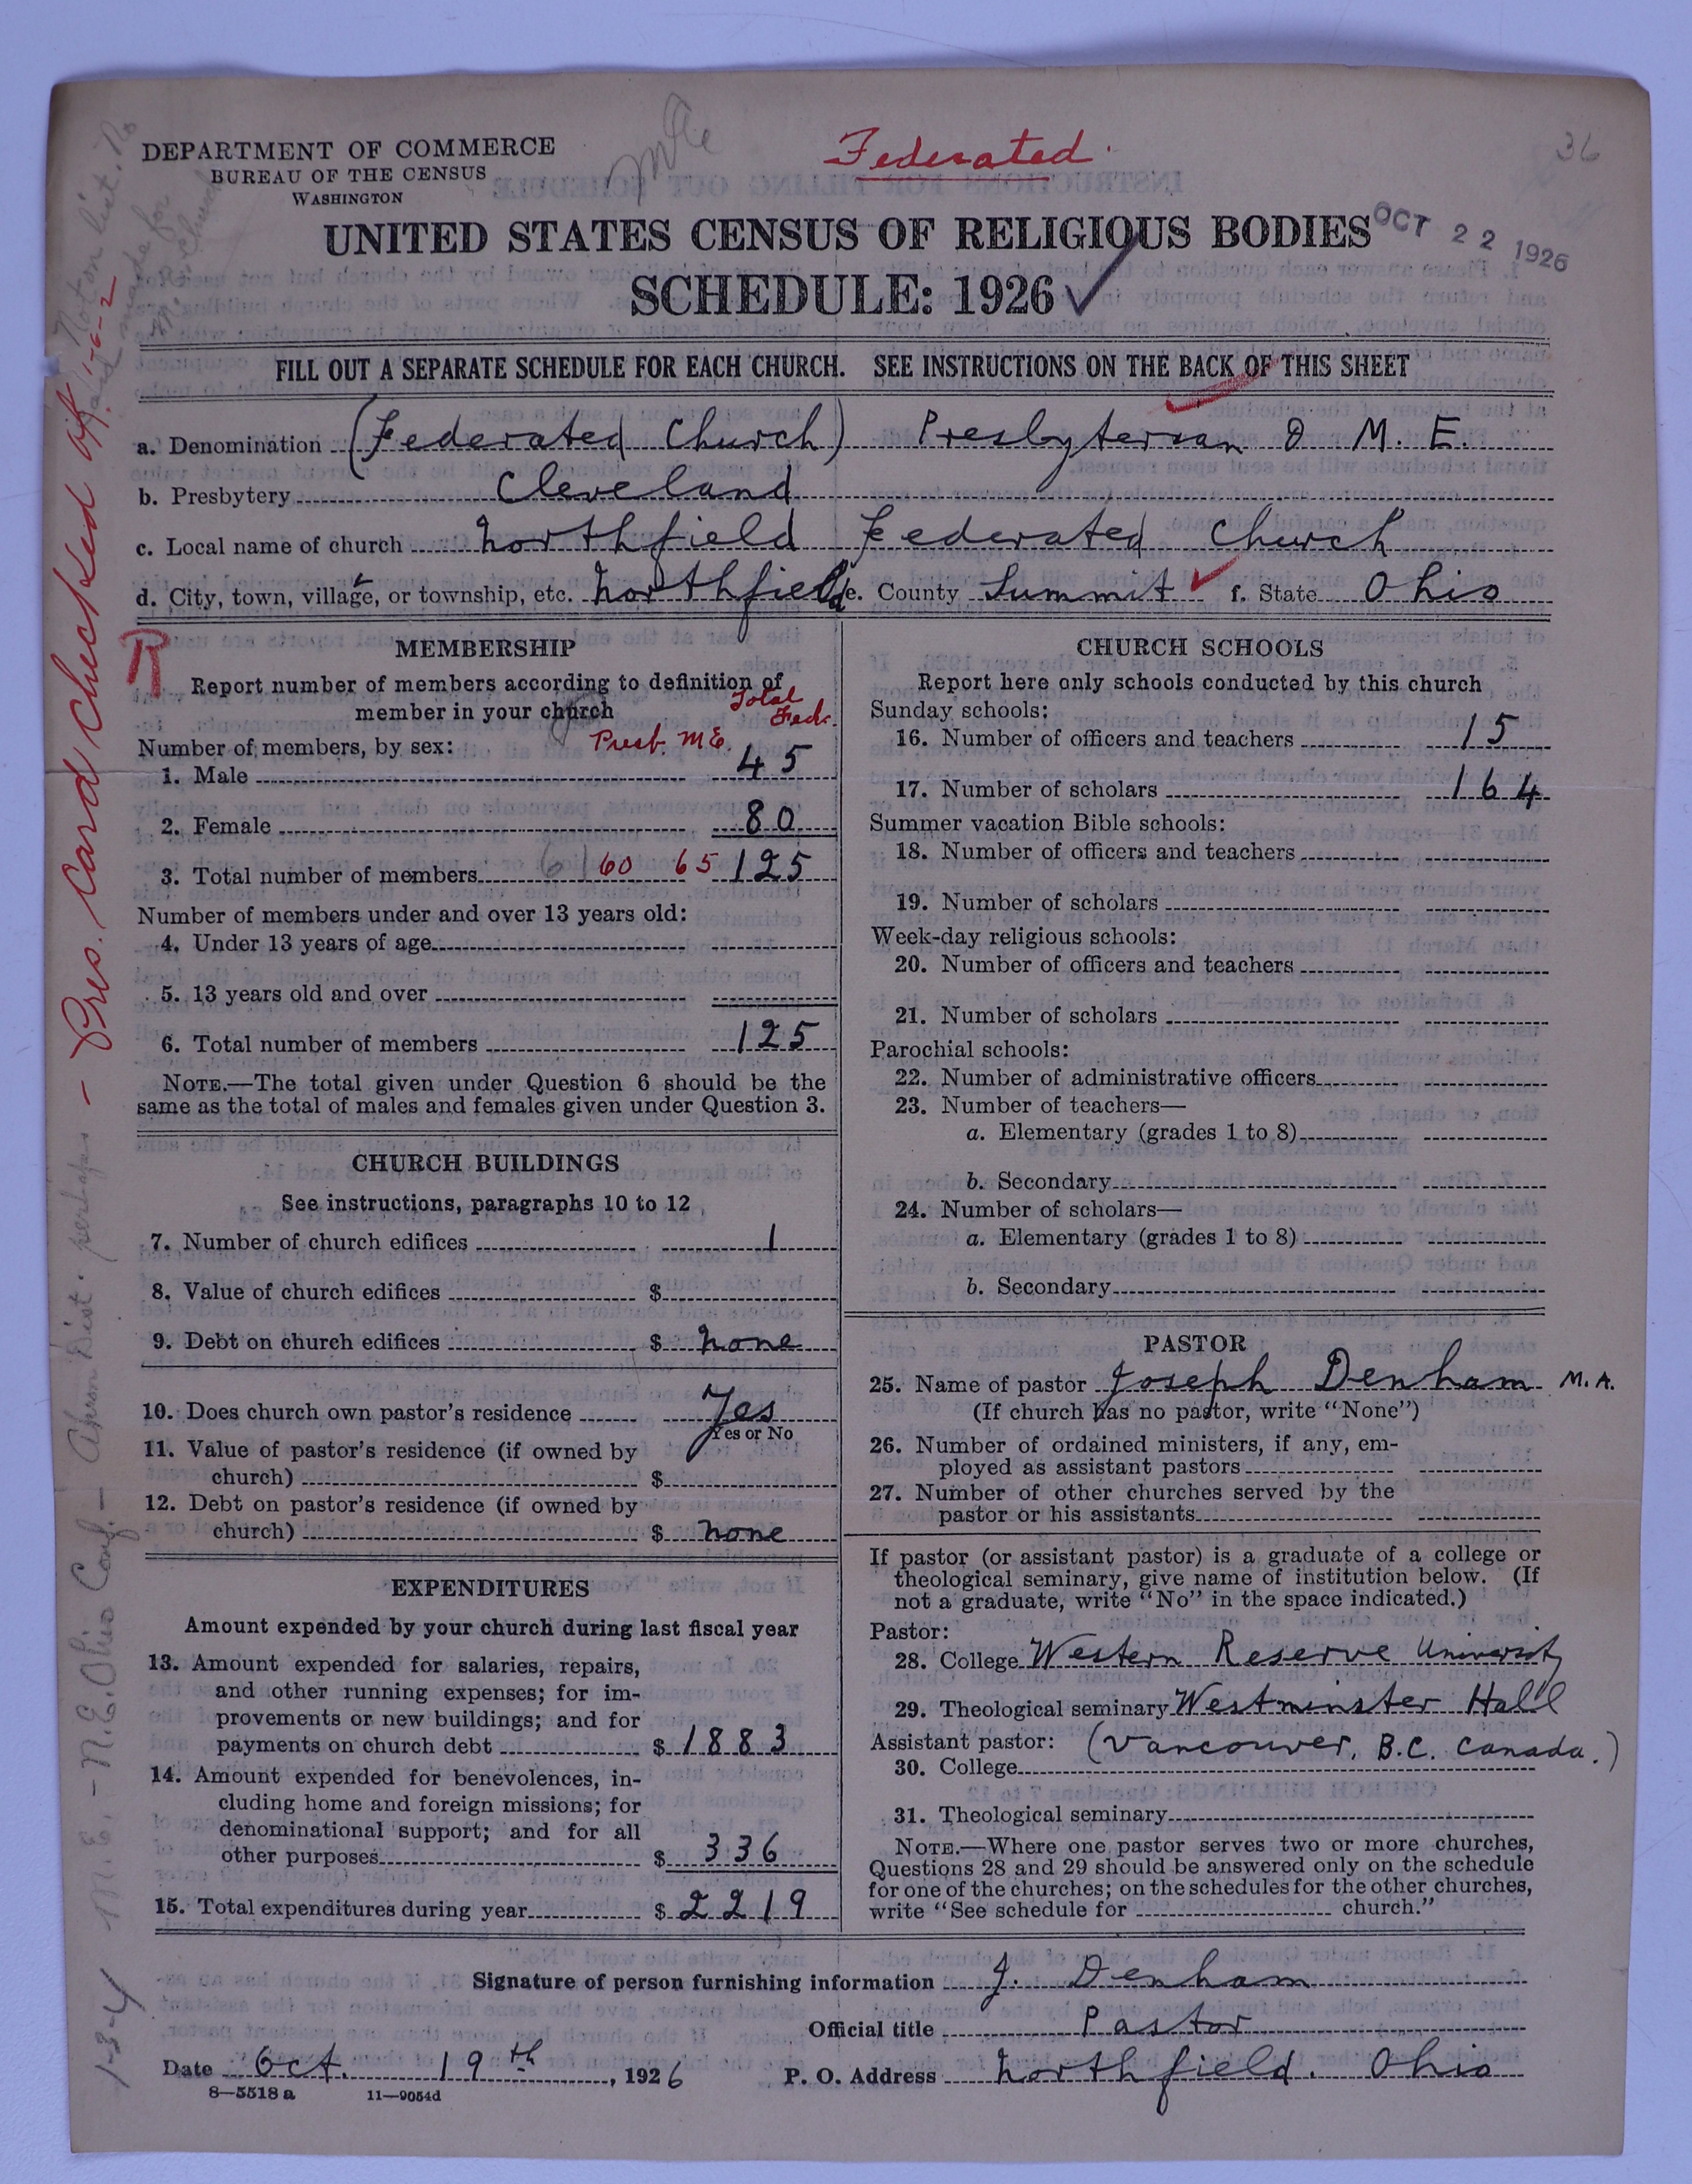 DEPARTMENT OF COMMERCE
BUREAU OF THE CENSUS
WASHINGTON
Federated.
36
UNITED STATES CENSUS OF RELIGIOUS BODIES
OCT 22 1926
SCHEDULE: 1926
FILL OUT A SEPARATE SCHEDULE FOR EACH CHURCH. SEE INSTRUCTIONS ON THE BACK OF THIS SHEET
a. Denomination (Federated Church) Presbyterian & M. E.
b. Presbytery Cleveland
c. Local name of church Northfield Federated Church
d. City, town, village, or township, etc. Northfield e. County Summit f. State Ohio
R
MEMBERSHIP
Report number of members according to definition of
member in your church
Total
Fedr.
Presb. M E.
Number of members, by sex:
1. Male 45
2. Female 80
3. Total number of members 61 60 65 125
Number of members under and over 13 years old:
4. Under 13 years of age
5. 13 years old and over
6. Total number of members 125
NOTE.—The total given under Question 6 should be the
same as the total of males and females given under Question 3.
CHURCH BUILDINGS
See instructions, paragraphs 10 to 12
7. Number of church edifices 1
8. Value of church edifices $
9. Debt on church edifices $ none
10. Does church own pastor's residence Yes
Yes or No
11. Value of pastor's residence (if owned by
church) $
12. Debt on pastor's residence (if owned by
church) $ none
EXPENDITURES
Amount expended by your church during last fiscal year
13. Amount expended for salaries, repairs,
and other running expenses; for im-
provements or new buildings; and for
payments on church debt $ 1883
14. Amount expended for benevolences, in-
cluding home and foreign missions; for
denominational support; and for all
other purposes $ 336
15. Total expenditures during year $ 2219
CHURCH SCHOOLS
Report here only schools conducted by this church
Sunday schools:
16. Number of officers and teachers 15
17. Number of scholars 164
Summer vacation Bible schools:
18. Number of officers and teachers
19. Number of scholars
Week-day religious schools:
20. Number of officers and teachers
21. Number of scholars
Parochial schools:
22. Number of administrative officers
23. Number of teachers—
a. Elementary (grades 1 to 8)
b. Secondary
24. Number of scholars—
a. Elementary (grades 1 to 8)
b. Secondary
PASTOR
25. Name of pastor Joseph Denham M.A.
(If church has no pastor, write "None")
26. Number of ordained ministers, if any, em-
ployed as assistant pastors
27. Number of other churches served by the
pastor or his assistants
If pastor (or assistant pastor) is a graduate of a college or
theological seminary, give name of institution below. (If
not a graduate, write "No" in the space indicated.)
Pastor:
28. College Western Reserve University
29. Theological seminary Westminster Hall
Assistant pastor: (Vancouver, B.C. Canada.)
30. College
31. Theological seminary
NOTE.—Where one pastor serves two or more churches,
Questions 28 and 29 should be answered only on the schedule
for one of the churches; on the schedules for the other churches,
write "See schedule for church."
Signature of person furnishing information J. Denham
Official title Pastor
Date Oct. 19th, 1926 P. O. Address Northfield. Ohio
8—5518 a 11—9054d
Pres. Card Checked off. 1-6-2
1-3-4 M.E. - N.E. Ohio Conf. - Akron Dist. perhaps -
Not on list.